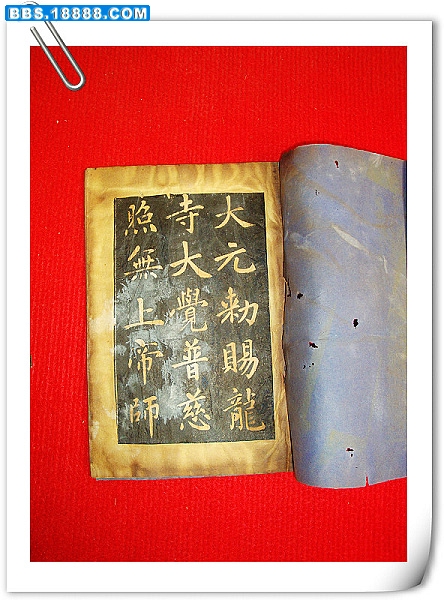 BBS.18888.COM
大元勅賜龍
寺大覺普慈
照無上帝師